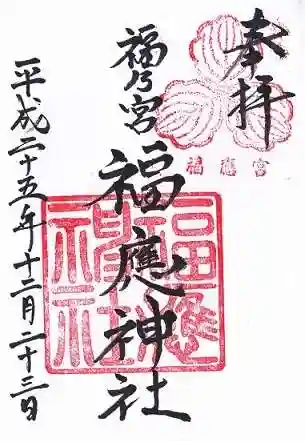 奉拝
福應宮
福乃宮
福應神社
福應神社
平成二十五年十二月二十三日